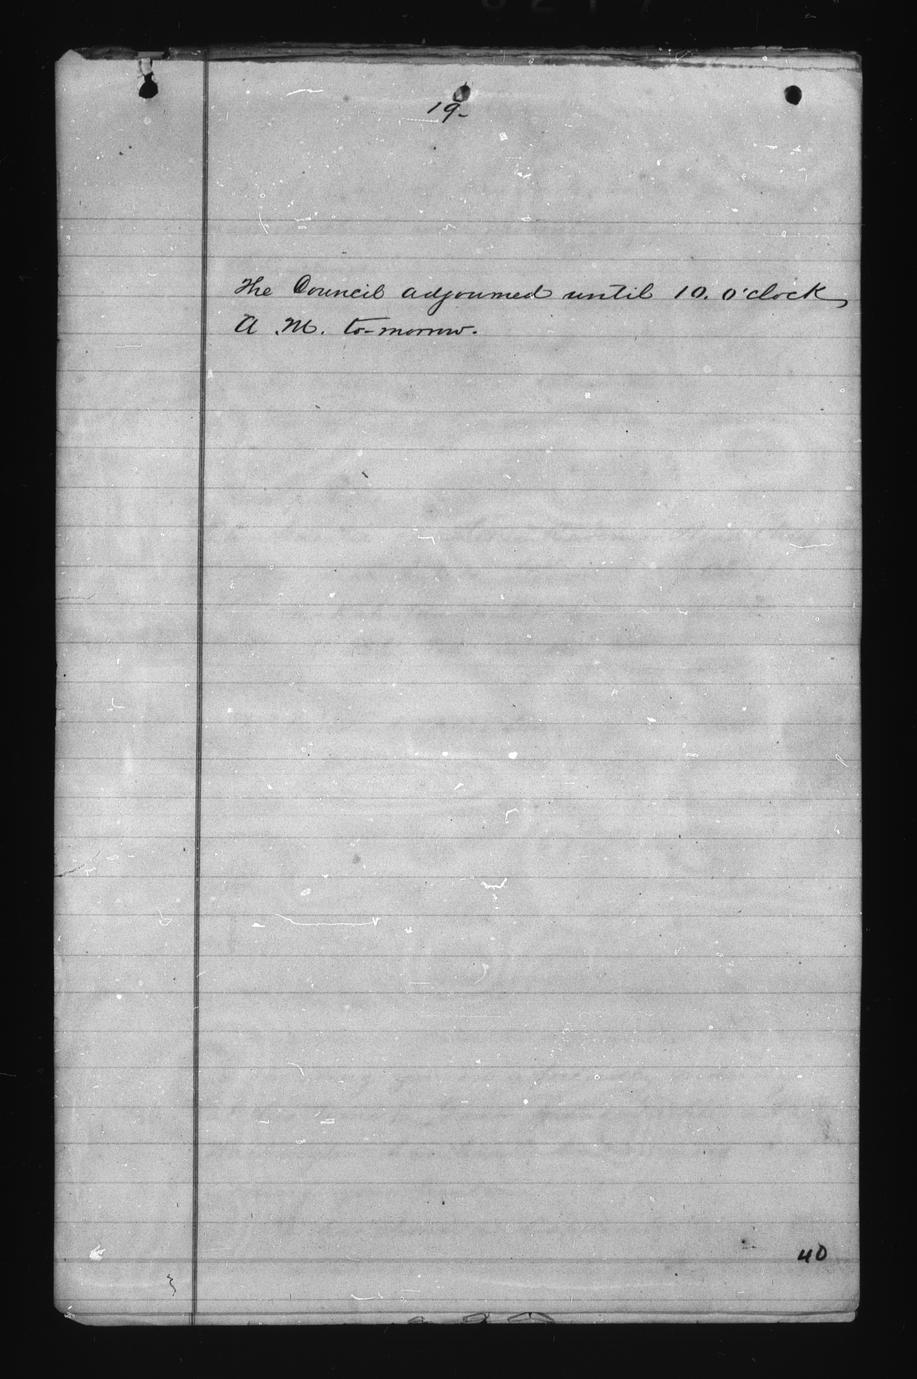 19-
The Council adjourned until 10. o'clock,
A .M. to-morrow.
40